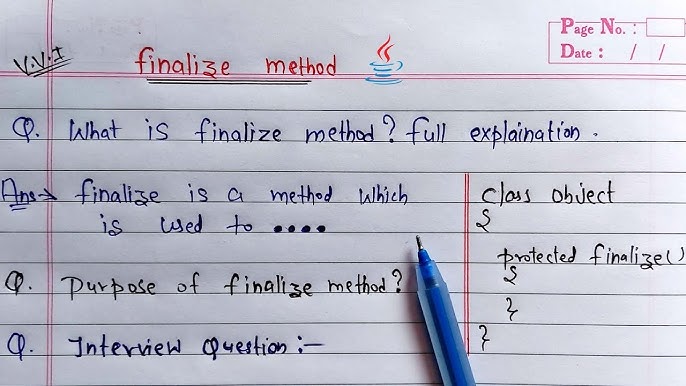 Page No. :
Date : / /
V.V.I
finalize method
Q. What is finalize method? full explaination.
Ans→ finalize is a method which
is used to ....
class object
{
protected finalize()
{
}
}
Q. Purpose of finalize method?
Q. Interview Question :-